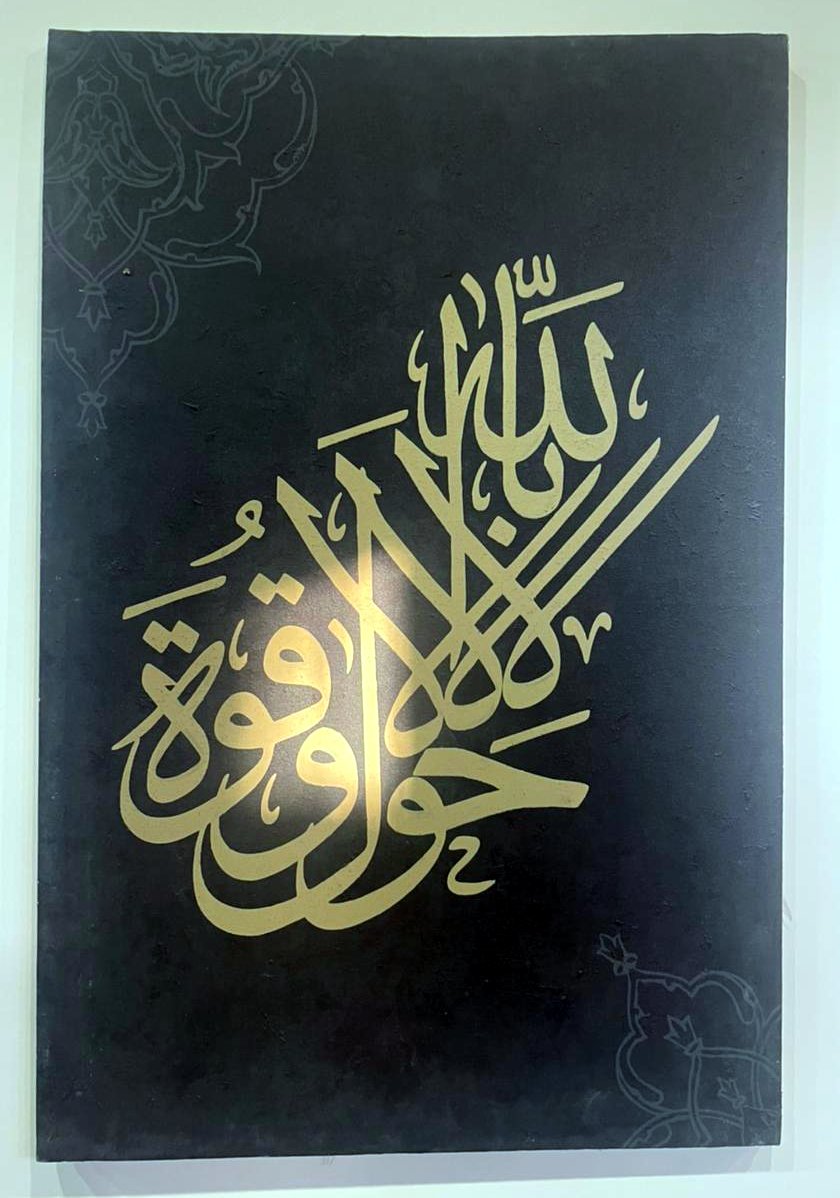 لا حَول ولا قُوَّةَ إلا بِاللَّه